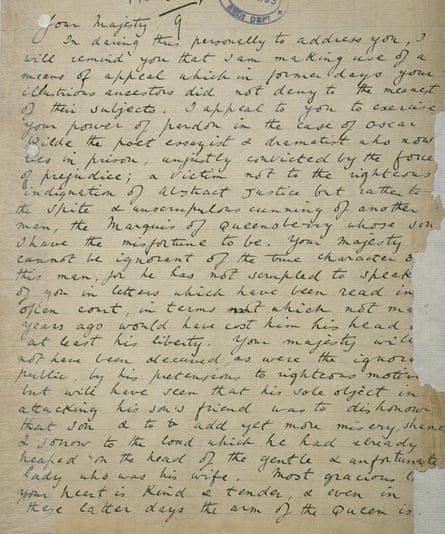 REGD DEPT
Your Majesty 9
In daring thus personally to address you, I
will remind you that I am making use of a
means of appeal which in former days your
illustrious ancestors did not deny to the meanest
of their subjects. I appeal to you to exercise
your power of pardon in the case of Oscar
Wilde the poet essayist & dramatist who now
lies in prison, unjustly convicted by the force
of prejudice; a victim not to the righteous
indignation of abstract justice but rather to
the spite & unscrupulous cunning of another
man, the Marquis of Queensberry whose son
I have the misfortune to be. Your majesty
cannot be ignorant of the true character o
this man, for he has not scrupled to speak
of you in letters which have been read in
open court, in terms which not ma
years ago would have cost him his head
at least his liberty. Your majesty will
not have been deceived, as were the ignora
public, by his pretensions to righteous motiv
but will have seen that his sole object in
attacking his son's friend was to dishonour
that son & to to add yet more misery, shame
& sorrow to the load which he had already
heaped on the head of the gentle & unfortunate
lady who was his wife. Most gracious
your heart is kind & tender, & even in
these latter days the arm of the Queen is